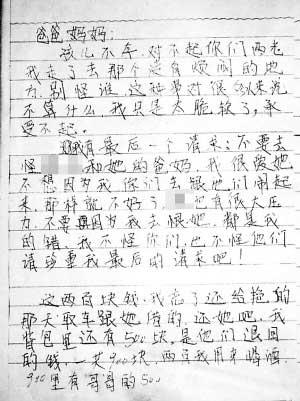 爸爸妈妈:
孩儿不孝,对不起你们两老
我走了去那个没有烦闹的地
方,别怪谁,这种事对很多人来说
不算什么,我只是太脆软了,承
受不起。
我有最后一个请求:不要去
怪 和她的爸妈,我很爱她
不想因为我你们去跟他们闹起
来,那样就不妙了 也有很大压
力,不要再因为我去恨她,都是我
的错,我不怪你们,也不怪他们
请尊重我最后的请求吧!
这两百块钱,我走了还给她的
那天取车跟她借的,还她吧,我
背包里还有500块,是他们退回
的钱,一共900块,两百我用来喝酒
900里有哥哥的500